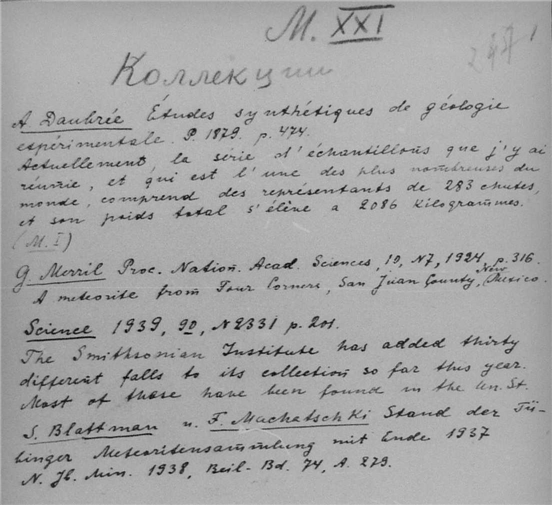 M. XXI
247 1
Коллекции
A. Daubrée Études synthétiques de géologie
expérimentale. P. 1879. p. 474.
Actuellement, la série d'échantillons que j'y ai
réunie, et qui est l'une des plus nombreuses du
monde, comprend des représentants de 283 chutes,
et son poids total s'élève a 2086 Kilogrammes.
(M. I)
G. Merril Proc. Nation. Acad. Sciences, 10, N7, 1924, p. 316.
A meteorite from Four Corners, San Juan County, New Mexico.
Science 1939, 90, N 2331 p. 201.
The Smithsonian Institute has added thirty
different falls to its collection so far this year.
Most of those have been found in the Un. St.
S. Blattman u. F. Machatschki Stand der Tü-
binger Meteoritensammlung mit Ende 1937
N. Jb. Min. 1938, Beil.-Bd. 74, A. 279.